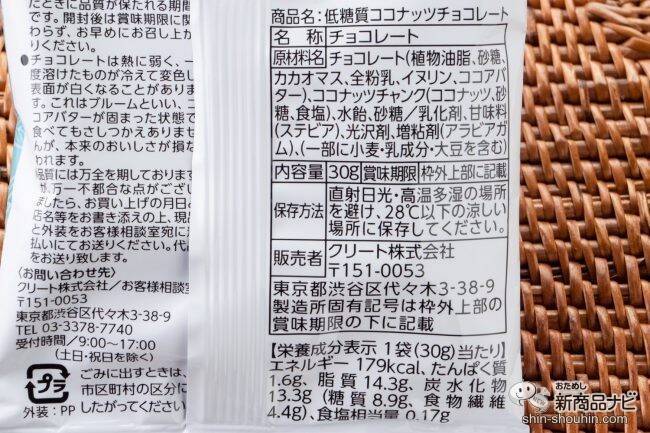 たときに品質が保たれる期限
す。開封後は賞味期限に関
わらず、お早めにお召し上が
りください。
●チョコレートは熱に弱く、一
度溶けたものが冷えて変色し
表面が白くなることがありま
す。これはブルームといい、コ
コアバターが固まった状態で
食べてもさしつかえありませ
んが、本来のおいしさが損な
われます。
品質には万全を期しており
万一不都合な点がござい
ましたら、お買い上げの月日と
店名等をお書き添えの上、現品
と外装をお客様相談室宛に
払いにてお送りください。代
をお送り致します。
〈お問い合わせ先〉
クリート株式会社/お客様相談
〒151-0053
東京都渋谷区代々木3-38-9
TEL 03-3378-7740
受付時間/9:00〜17:00
(土日・祝日を除く)
プラ
外装:PP
ごみに出すときは、
市区町村の区分に
したがってください
商品名:低糖質ココナッツチョコレート
名称 チョコレート
原材料名 チョコレート(植物油脂、砂糖、
カカオマス、全粉乳、イヌリン、ココアバ
ター)、ココナッツチャンク(ココナッツ、砂
糖、食塩)、水飴、砂糖/乳化剤、甘味料
(ステビア)、光沢剤、増粘剤(アラビアガ
ム)、(一部に小麦・乳成分・大豆を含む)
内容量 30g 賞味期限 枠外上部に記載
保存方法 直射日光・高温多湿の場所
を避け、28℃以下の涼しい
場所に保存してください。
販売者 クリート株式会社
〒151-0053
東京都渋谷区代々木3-38-9
製造所固有記号は枠外上部の
賞味期限の下に記載
【栄養成分表示 1袋(30g)当たり】
エネルギー 179kcal、たんぱく質
1.6g、脂質 14.3g、炭水化物
13.3g(糖質 8.9g、食物繊維
4.4g)、食塩相当量 0.17g
おためし
新商品ナビ
shin-shouhin.com